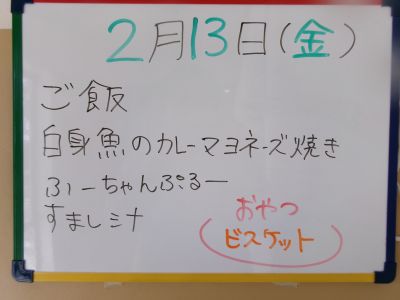 2月13日(金)
ご飯
白身魚のカレーマヨネーズ焼き
ふーちゃんぷるー
すまし汁
おやつ
ビスケット